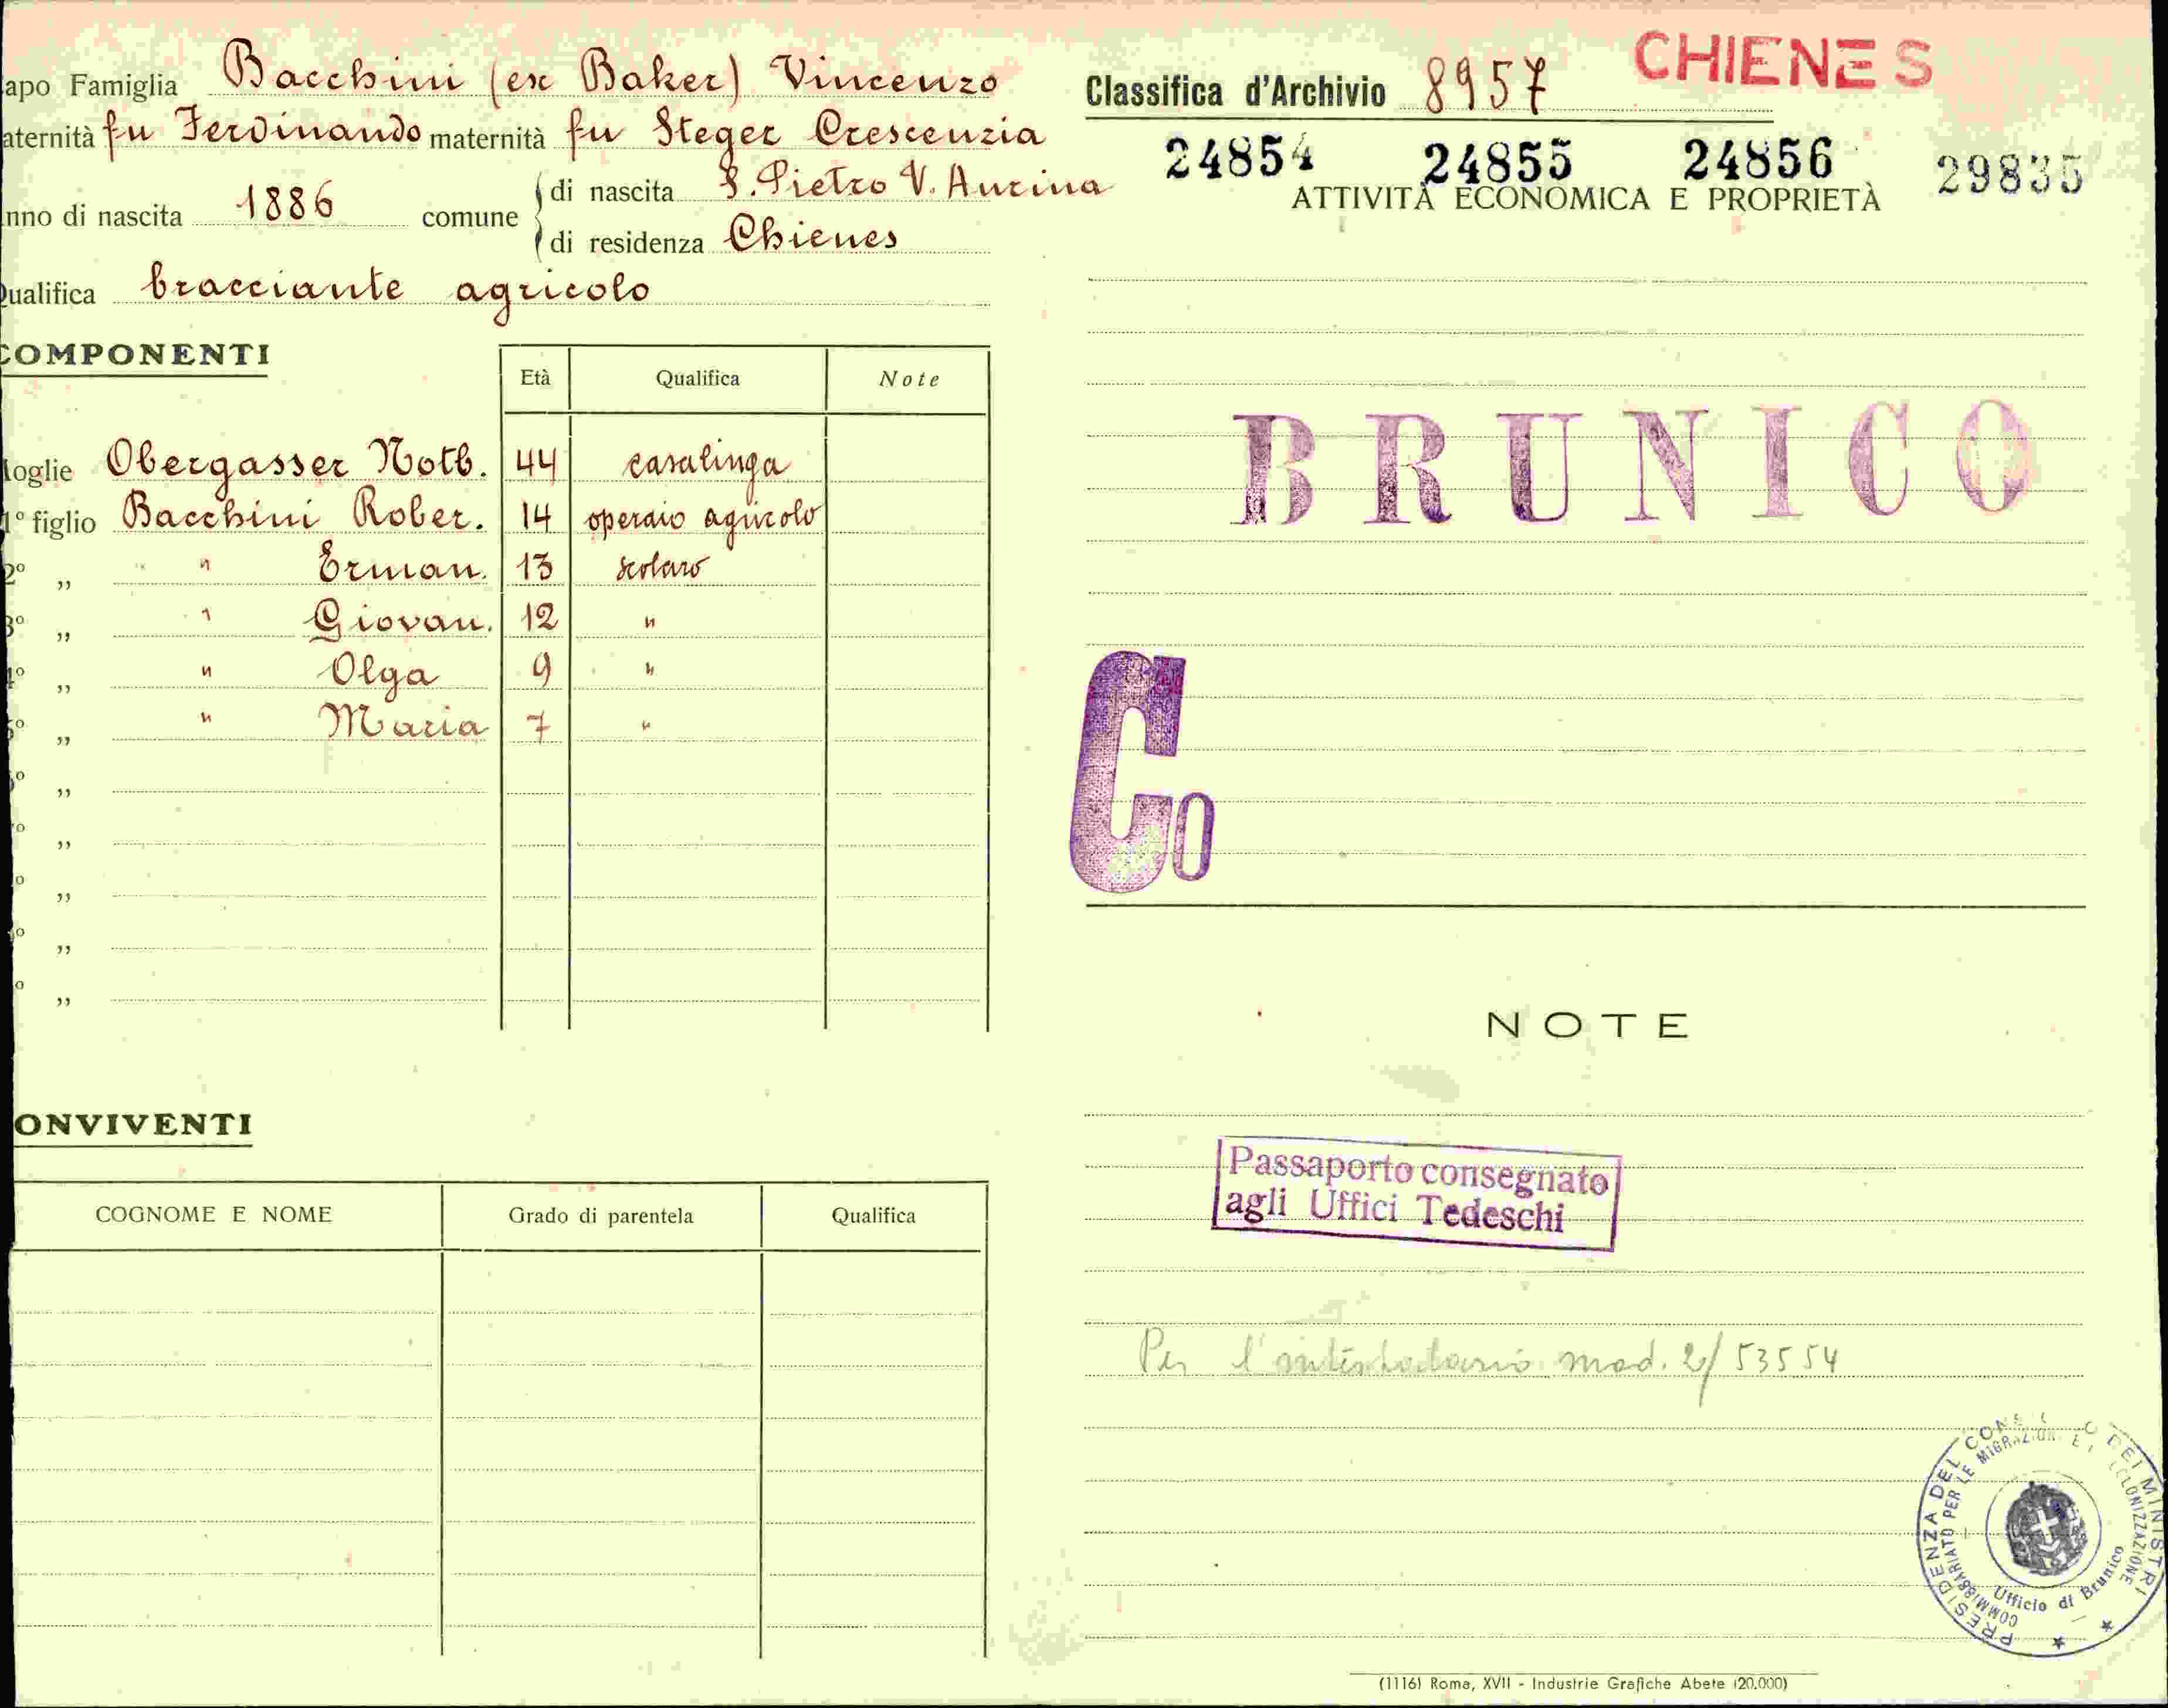 apo Famiglia Bacchini (ex Baker) Vincenzo
aternità fu Ferdinando maternità fu Steger Crescenzia
nno di nascita 1886 comune di nascita S. Pietro V. Aurina
di residenza Chienes
Qualifica bracciante agricolo
COMPONENTI
Età Qualifica Note
oglie Obergasser Notb. 44 casalinga
1° figlio Bacchini Rober. 14 operaio agricolo
2° „ " Erman. 13 scolaro
3° „ " Giovan. 12 "
4° „ " Olga 9 "
5° „ " Maria 7 "
° „
° „
° „
° „
° „
ONVIVENTI
COGNOME E NOME Grado di parentela Qualifica
Classifica d'Archivio 8957 CHIENES
24854 24855 24856 29835
ATTIVITÀ ECONOMICA E PROPRIETÀ
BRUNICO
Co
NOTE
Passaporto consegnato
agli Uffici Tedeschi
Per mod. 2/53554
PRESIDENZA DEL CONSIGLIO DEI MINISTRI
COMMISSARIATO PER LE MIGRAZIONI E LA COLONIZZAZIONE
Ufficio di Brunico
(1116) Roma, XVII - Industrie Grafiche Abete (20.000)